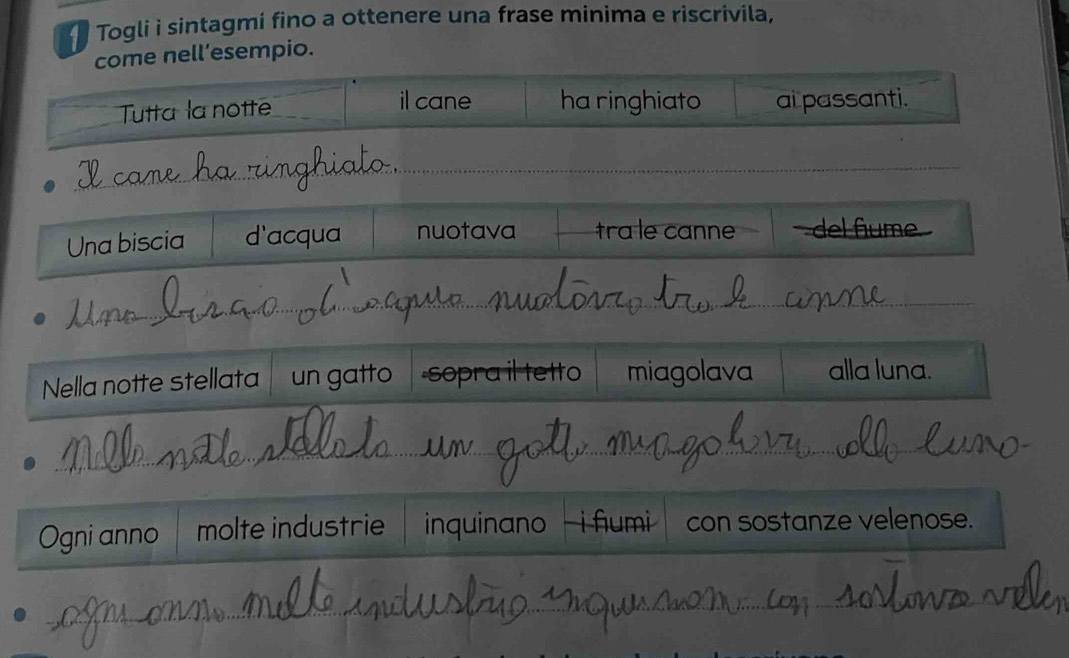 1 Togli i sintagmi fino a ottenere una frase minima e riscrivila,
come nell'esempio.
Tutta la notte il cane ha ringhiato ai passanti.
Il cane ha ringhiato.
Una biscia d'acqua nuotava tra le canne del fiume
Una biscia d'acqua nuotava tra le canne
Nella notte stellata un gatto sopra il tetto miagolava alla luna.
nella notte stellata un gatto miagolava alla luna
Ogni anno molte industrie inquinano i fiumi con sostanze velenose.
ogni anno molte industrie inquinano con sostanze velen